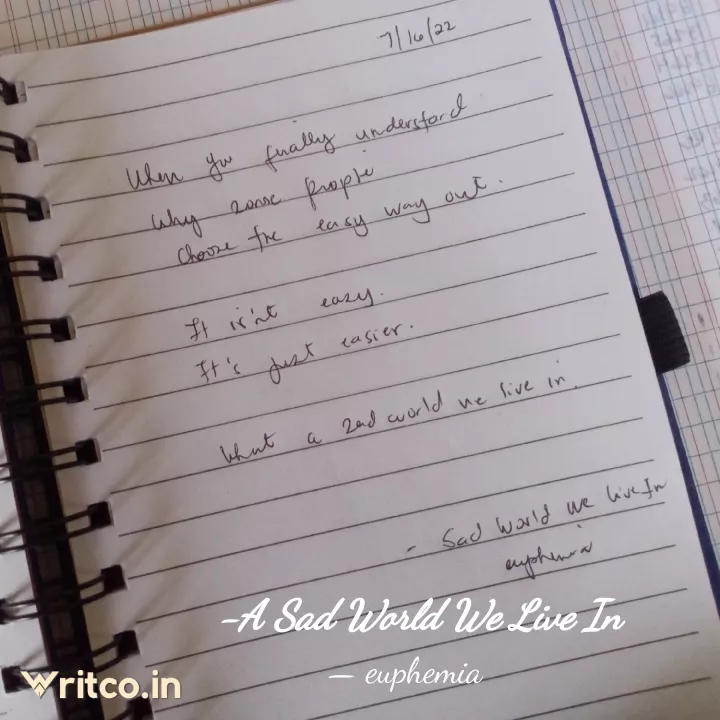 7/16/22
When you finally understand
why some people
choose the easy way out.
It is'nt easy.
It's just easier.
What a sad world we live in.
- Sad World We live In
euphemia
-A Sad World We Live In
— euphemia
Writco.in